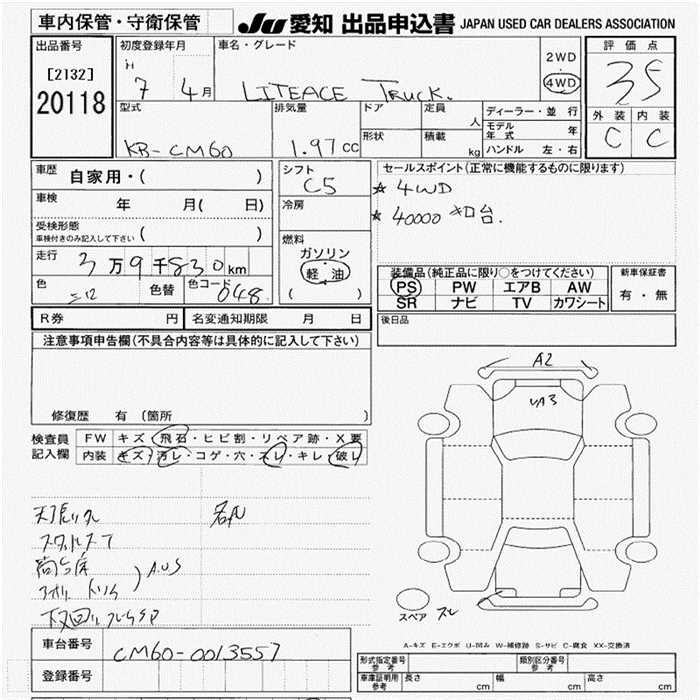 車内保管・守衛保管
JU 愛知 出品申込書 JAPAN USED CAR DEALERS ASSOCIATION
出品番号
[2132]
20118
初度登録年月
H 7 4 月
車名・グレード
LITEACE TRUCK.
2WD
4WD
評価点
3.5
外装 内装
C C
型式
KB-CM60
排気量
1.97 cc
ドア
形状
定員
人
積載
kg
ディーラー・並 行
モデル年式 年
ハンドル 左・右
車歴
自家用・( )
車検
年 月( 日)
受検形態
車検付きのみ記入して下さい ( )
走行
3万9千830km
色
色替
色コード
048
シフト
C5
冷房
燃料
ガソリン
・
軽 油
( )
セールスポイント(正常に機能するものに限ります)
☆ 4WD
☆ 40000 ㌔台.
装備品(純正品に限り〇をつけてください)
PS PW エアB AW
SR ナビ TV カワシート
新車保証書
有・無
後日品
R券 円
名変通知期限 月 日
注意事項申告欄(不具合内容等は具体的に記入して下さい)
修復歴 有 (箇所 )
検査員記入欄
FW キズ・飛石・ヒビ割・リペア跡・X要
内装 キズ・汚レ・コゲ・穴・スレ・キレ・破レ
A2
UA3
A,U,S
スペア スレ
A-キズ E-エクボ U-凹み W-補修跡 S-サビ C-腐食 XX-交換済
車台番号
CM60-0013557
登録番号
形式指定番号 参考
類別区分番号 参考
車庫証明用 参考 長さ cm 幅 cm 高さ cm